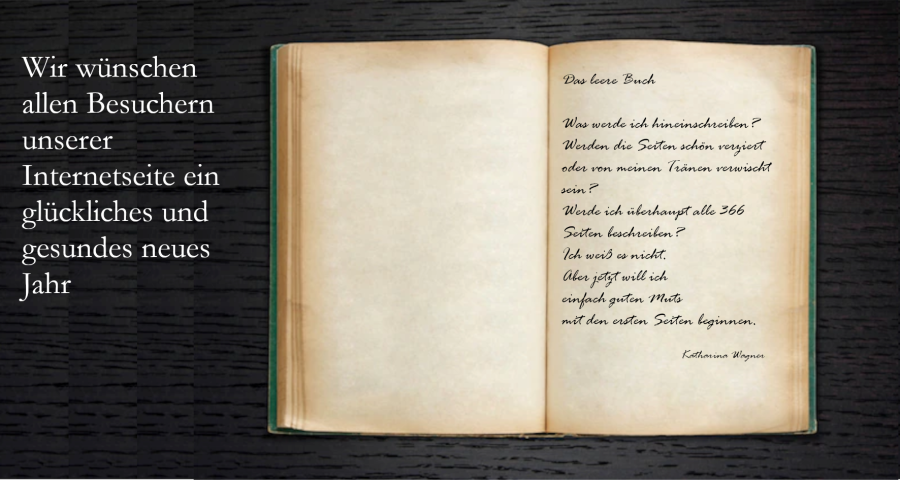 Wir wünschen
allen Besuchern
unserer
Internetseite ein
glückliches und
gesundes neues
Jahr
Das leere Buch
Was werde ich hineinschreiben?
Werden die Seiten schön verziert
oder von meinen Tränen verwischt
sein?
Werde ich überhaupt alle 366
Seiten beschreiben?
Ich weiß es nicht.
Aber jetzt will ich
einfach guten Muts
mit den ersten Seiten beginnen.
Katharina Wagner